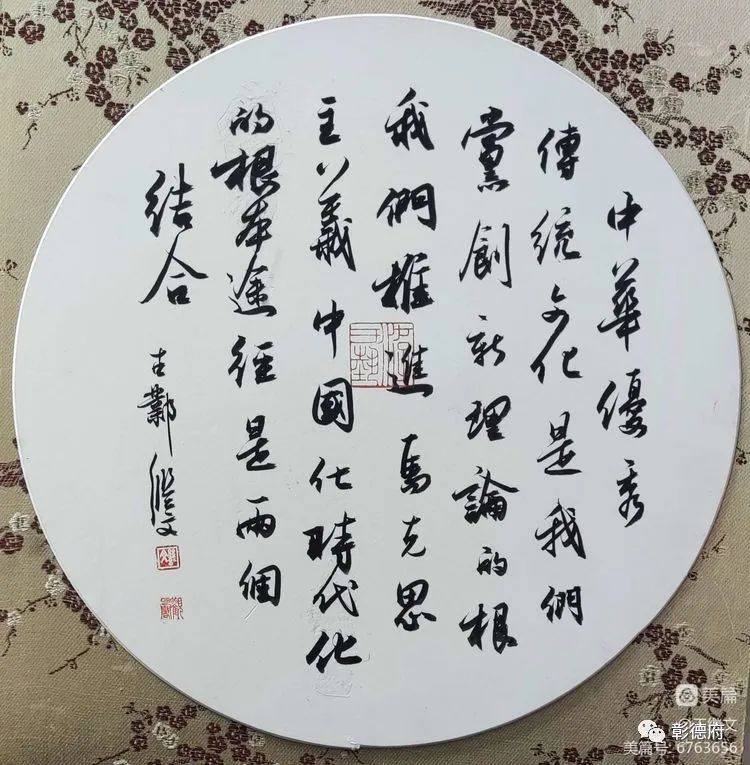 中华優秀
傳統文化是我們
黨創新理論的根
我們推進馬克思
主義中國化時代化
的根本途徑是两個
結合
古鄴 繼文
美篇
美篇号: 6763656
彰德府